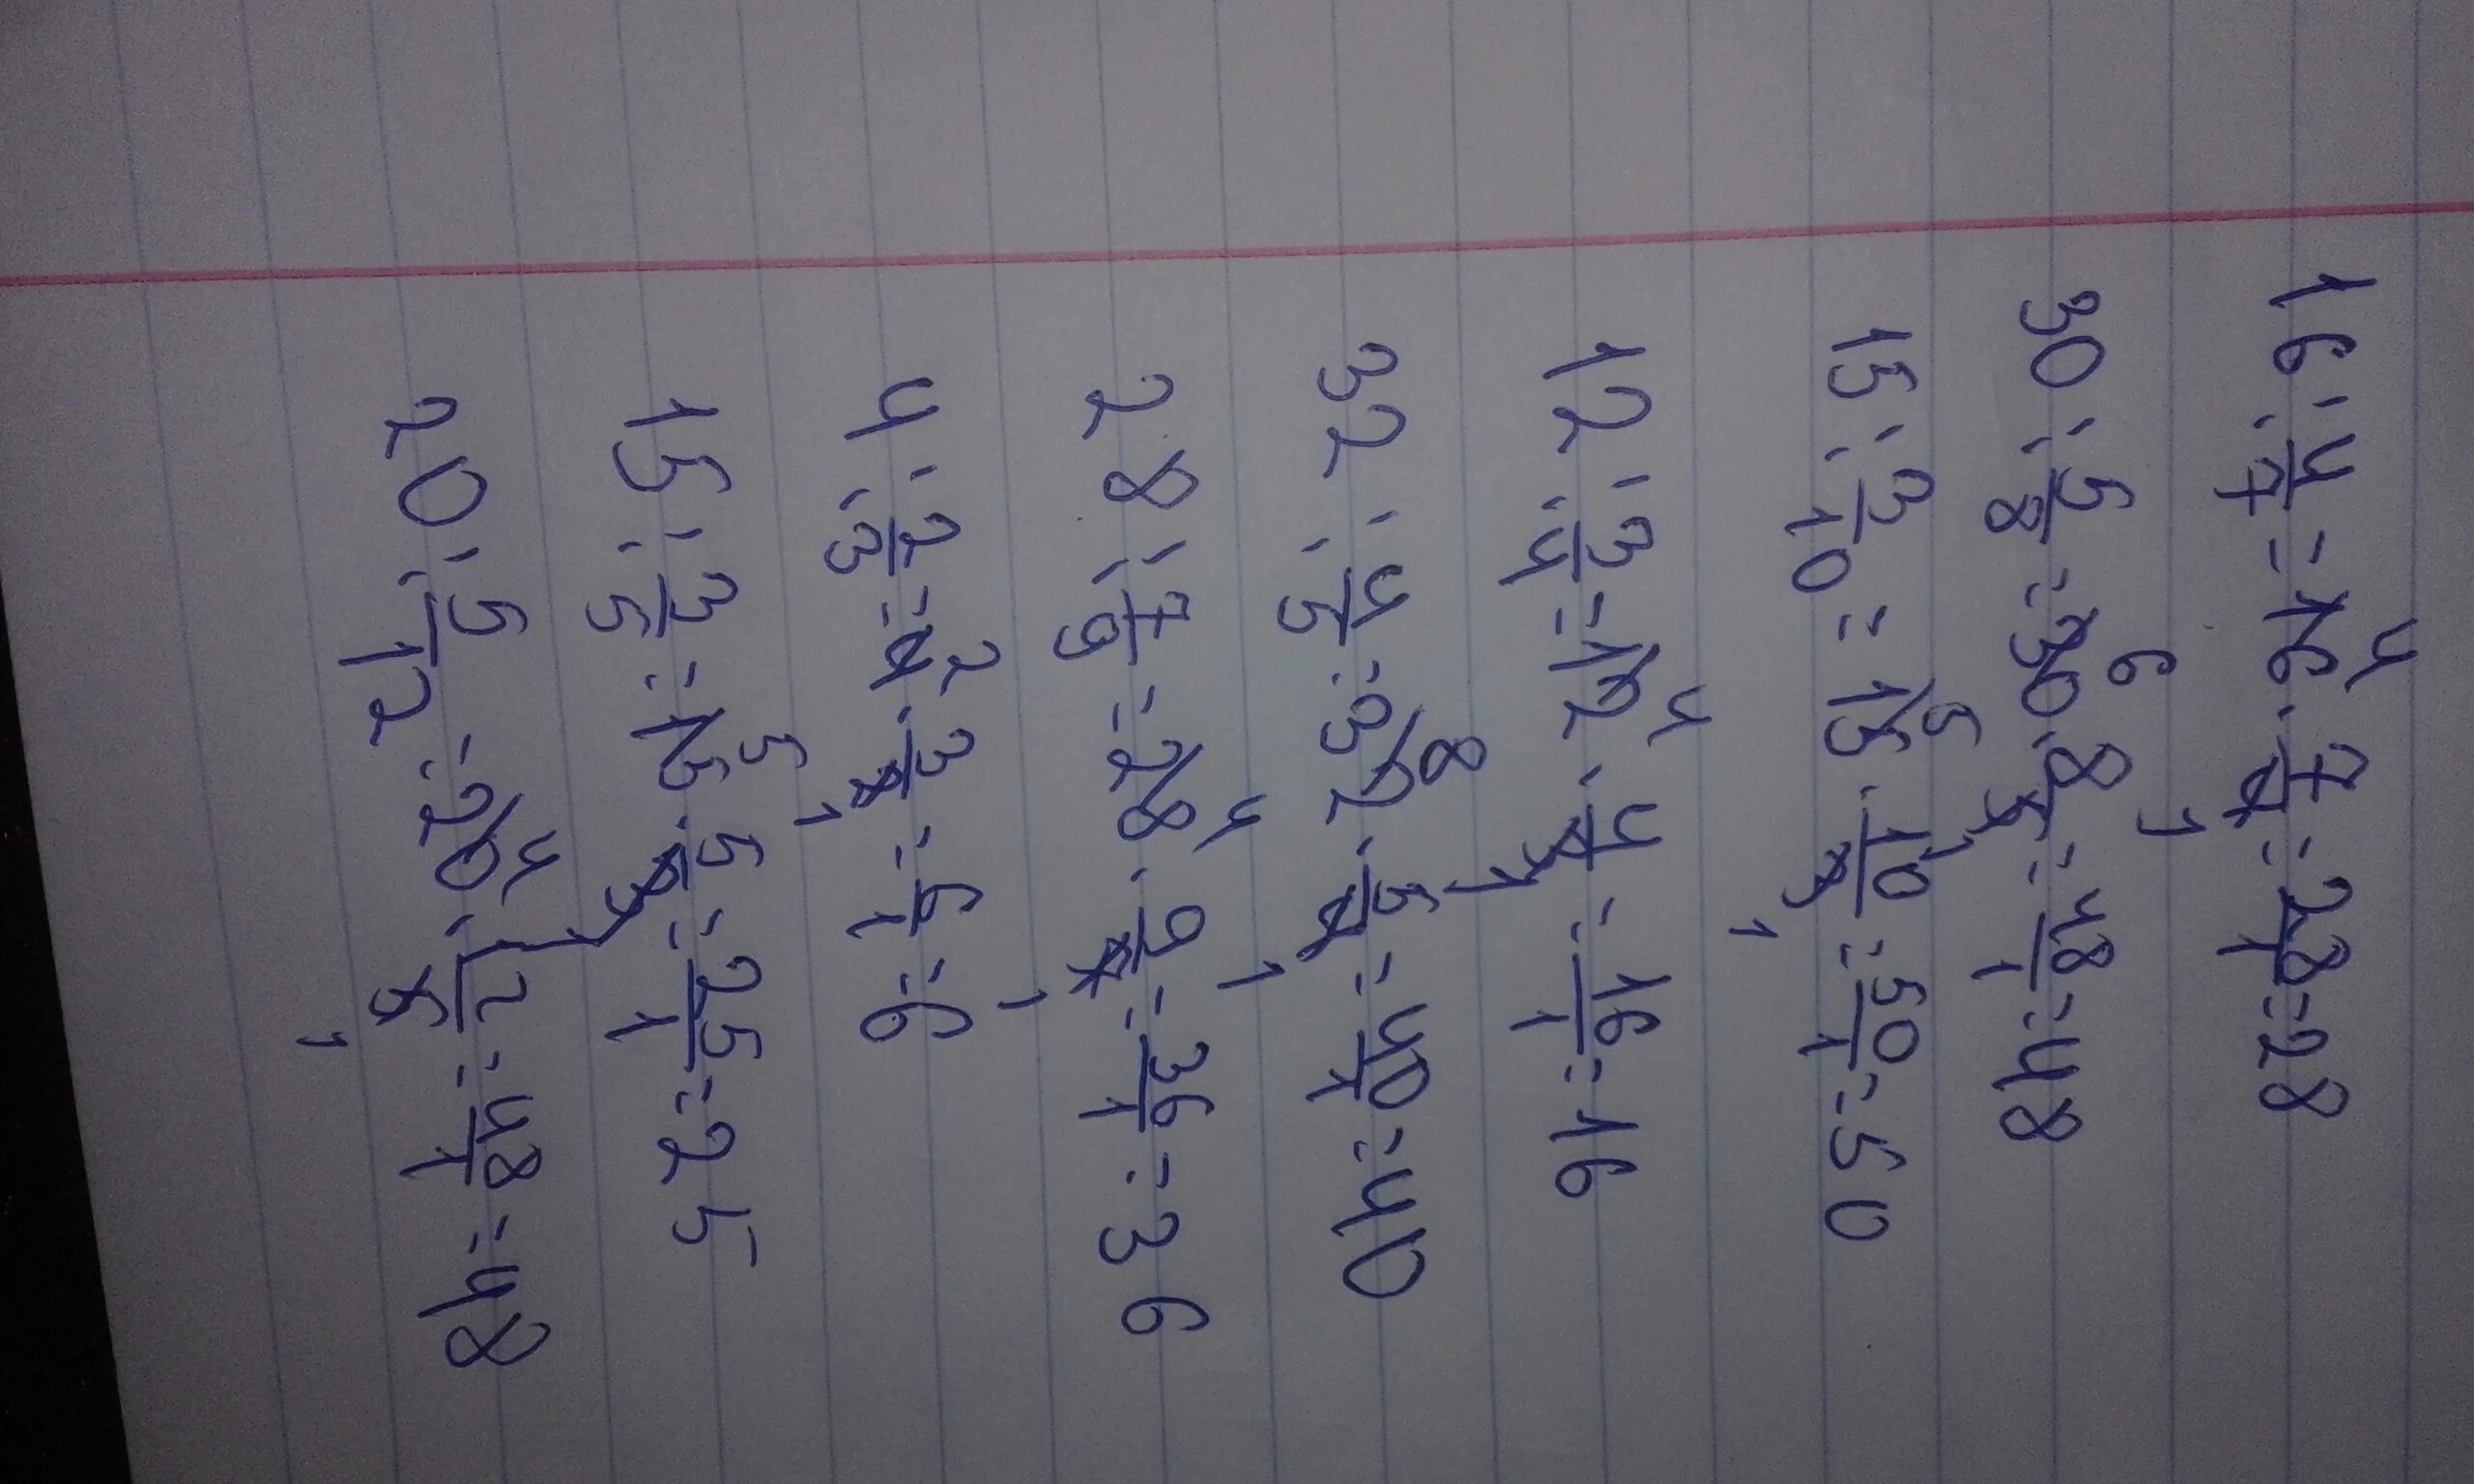 16 : 4/7 = 16 4 · 7/4 1 = 28/1 = 28
30 : 5/8 = 30 6 · 8/5 1 = 48/1 = 48
15 : 3/10 = 15 5 · 10/3 1 = 50/1 = 50
12 : 3/4 = 12 4 · 4/3 1 = 16/1 = 16
32 : 4/5 = 32 8 · 5/4 1 = 40/1 = 40
28 : 7/9 = 28 4 · 9/7 1 = 36/1 = 36
4 : 2/3 = 4 2 · 3/2 1 = 6/1 = 6
15 : 3/5 = 15 5 · 5/3 1 = 25/1 = 25
20 : 5/12 = 20 4 · 12/5 1 = 48/1 = 48